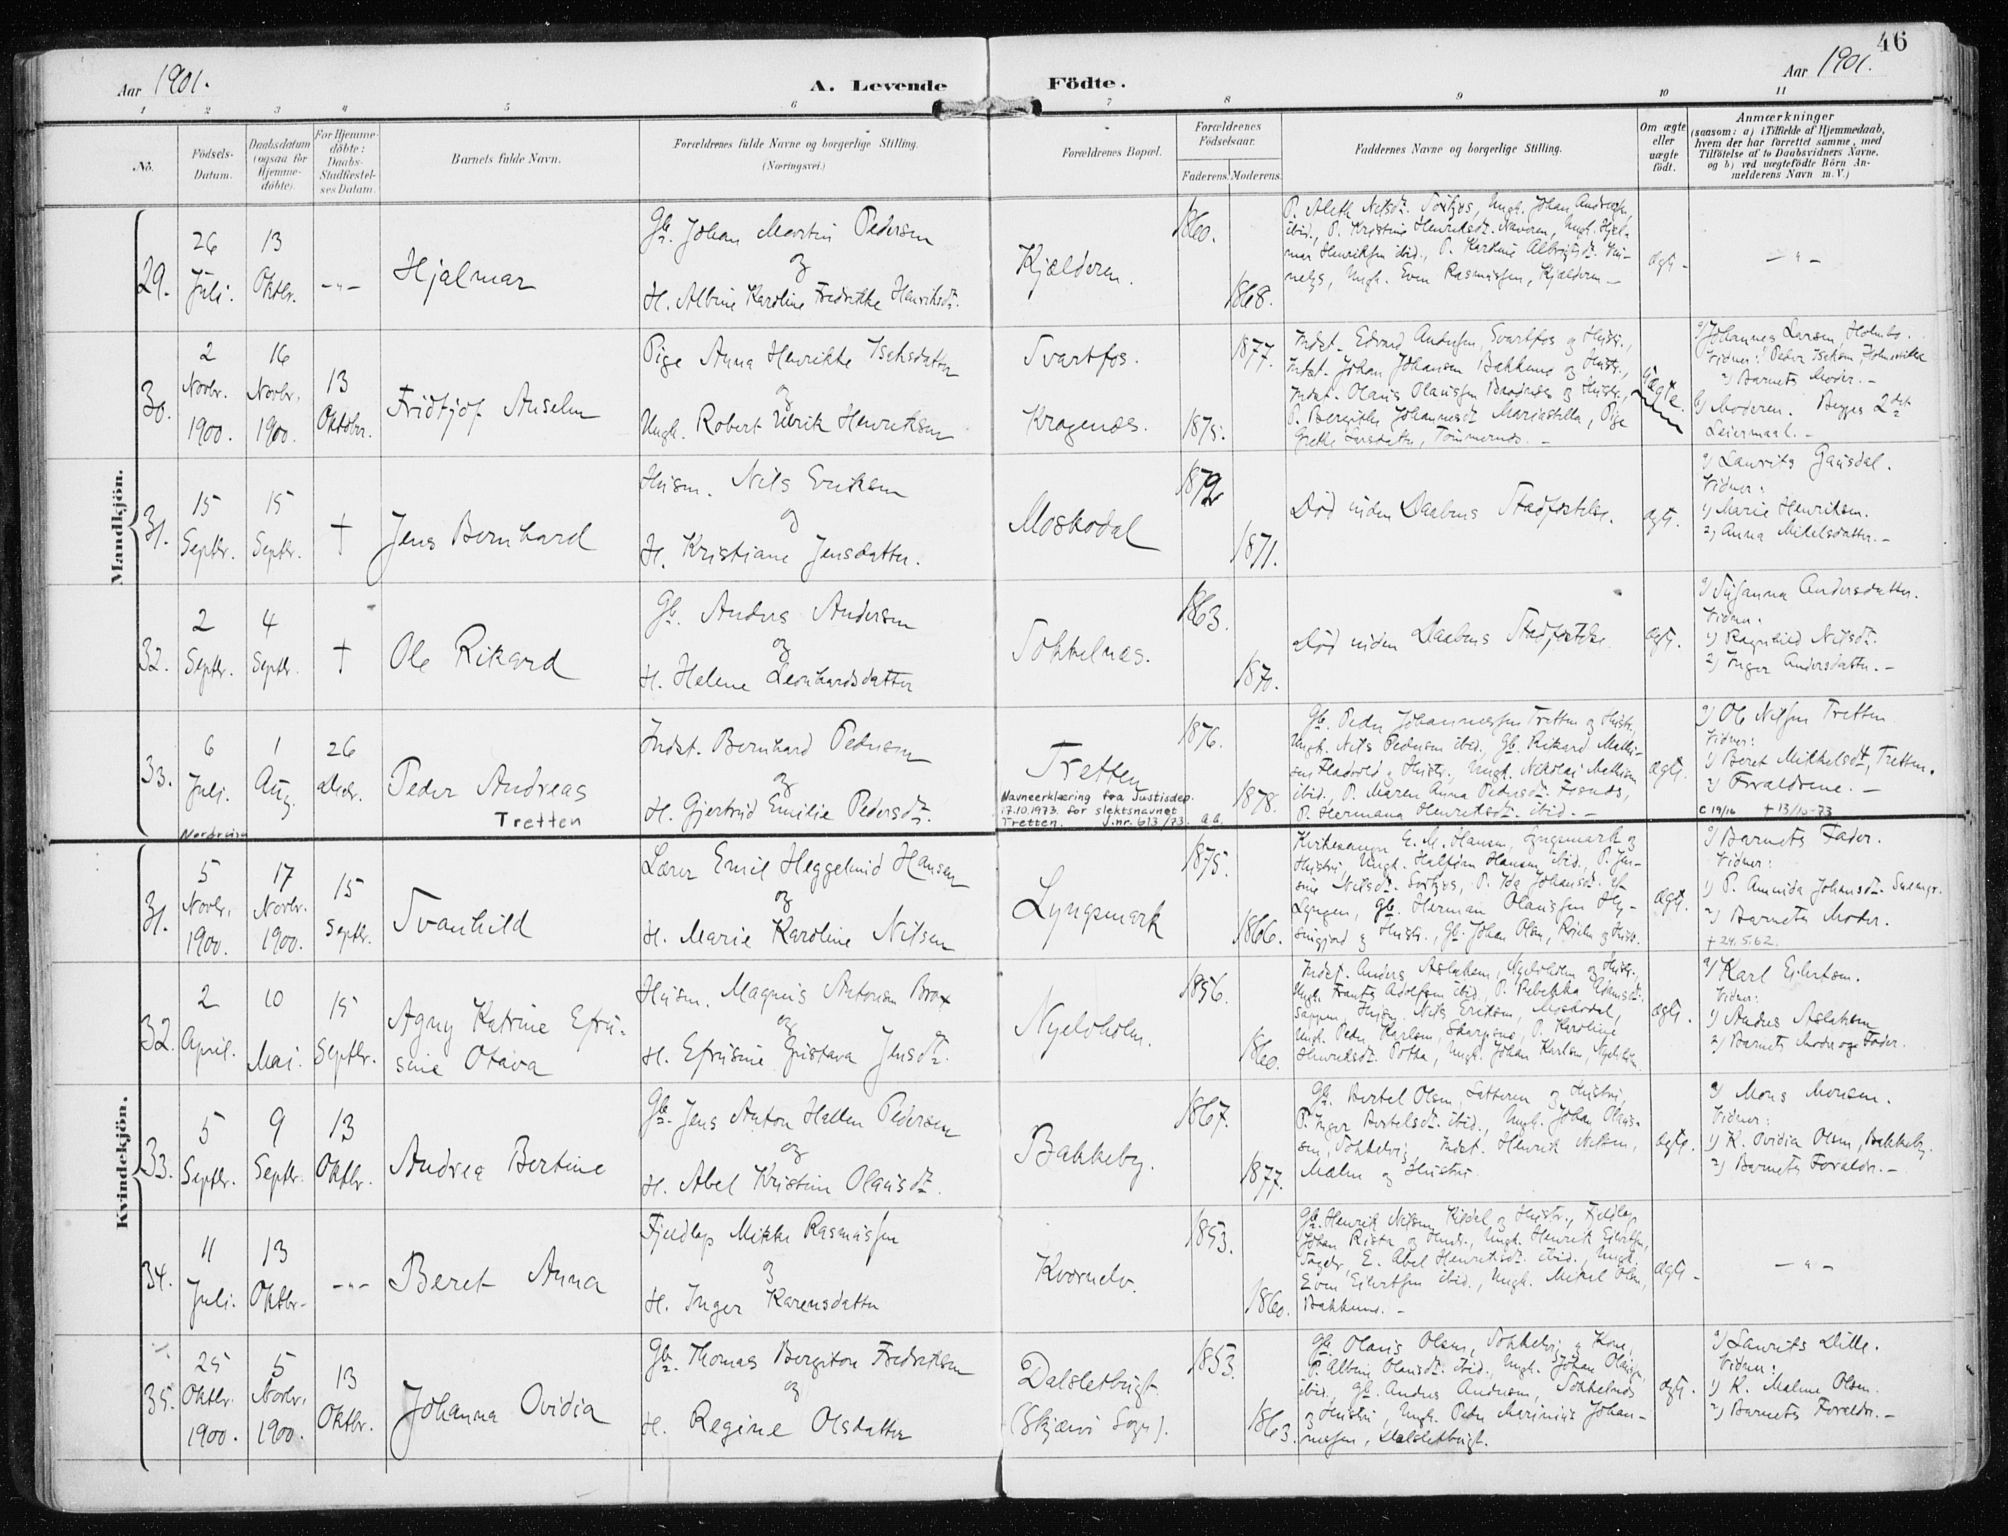 46
Aar 1901.
A. Levende Födte.
Aar 1901.
1 2 3 4 5 6 7 8 9 10 11
No.
Födsels-
Datum.
Daabsdatum
(ogsaa for
Hjemme-
döbte).
For Hjemme-
döbte:
Daabs-
Stadfæstel-
ses Datum.
Barnets fulde Navn.
Forældrenes fulde Navne og borgerlige Stilling.
(Næringsvei.)
Forældrenes Bopæl.
Forældrenes
Födselsaar.
Faderens. Moderens.
Faddernes Navne og borgerlige Stilling.
Om ægte
eller
uægte
födt.
Anmærkninger
(saasom: a) i Tilfælde af Hjemmedaab,
hvem der har forrettet samme, med
Tilföielse af to Daabsvidners Navne,
og b) ved uægtefödte Börn An-
melderens Navn m. V.)
Mandkjön.
29.
26
Juli.
13
Oktbr.
-"-
Hjalmar
Gb. Johan Martin Pedersen
og
H. Albine Karoline Fredrikke Henriksdt.
Kjælderen.
1860.
1868.
P. Aleth Nilsdt. Sörfjos, Ungk. Johan Andreas,
ibid., P. Kristine Henriksdt. Naveren, Ungk. Hjal-
mar Henriksen ibid., P. Karoline Albrigtsdt.
Ungk. Even Rasmussen, Kjælderen -
ægt. -
-"-
30.
2
Novbr.
1900.
16
Novbr.
1900.
13
Oktobr.
Fridtjof Anselm
Pige Anna Henrikke Isaksdatter
og
Ungk. Robert Ulrik Henriksen
Svartfos.
Kragenæs.
1877.
1875.
Indst. Edvard Andersen, Svartfos og Hustr.,
Indst. Johan Johansen Bakkene og Hustr.,
Indst. Olaus Olaussen og Hustr.,
P. Bergithe Johannesdt. Mariastilla, Pige
Grethe Larsdatter, Tömmernes. -
Uægte.
a) Johannes Larsen, Holmbo.
Vidner: Peder Isaksen Holmvikka
2) Barnets Moder. -
b) Moderen. Begges 2det
Leiermaal. -
31.
15
Septbr.
15
Septbr.
†
Jens Bernhard
Husm. Nils Eriksen
og
H. Kristiane Jensdatter.
Moskodal
1872
1871.
Död inden Daabens Stadfæstelse.
ægt.
a) Laurits Gausdal.
Vidner:
1) Marie Henriksen.
2) Anna Mikelsdatter. -
32.
2
Septbr.
4
Septbr.
†
Ole Rikard
Gb. Anders Andersen
og
H. Helene Leonhardsdatter
Sokkelnæs.
1863.
1870.
Död inden Daabens Stadfæstelse
ægt.
a) Susanna Andersdatter.
Vidner.
1) Ragnhild Nilsdt.
2) Inger Andersdatter. -
33.
6
Juli.
Nordreisa
1
Aug.
26
Decbr.
Peder Andreas
Tretten
Indst. Bernhard Pedersen
og
H. Gjertrud Emilie Pedersdt.
Tretten
Navneerklæring fra Justisdep.
17.10.1973. for slektsnavnet
Tretten. J.nr. 613/73. a.a.
1876.
1878.
Gb. Peder Johannessen Tretten og Hustr.,
Ungk. Nils Pedersen ibid., Gb. Rikard Mathi-
sen Fladvold og Hustr., Ungk. Nikolai Mathisen
ibid., P. Maren Anna Pedersdt. Fosnæs,
P. Hermana Henriksdt. ibid. -
ægt.
a) Ole Nilsen Tretten
Vidner:
1) Beret Mikkelsdt, Tretten.
2) Forældrene. -
C 19/16 † 13/10-73
Kvindekjön.
31.
5
Novbr.
1900.
17
Novbr.
1900.
15
Septbr.
Svanhild
Lærer Emil Heggelund Hansen
og
H. Marie Karoline Nilsen
Lyngsmark
1875.
1866.
Kirkesanger E. M. Hansen, Lyngsmark og
Hustru, Ungk. Halfdan Hansen ibid., P. Jen-
sine Nilsdt. Sörfjos, P. Ida Johansdt. af
Lyngen, Gb. Herman Olaussen
og Hustr., Gb. Johan Olsen, og Hustr.
ægt.
a) Barnets Fader.
Vidner:
1) P. Amanda Johansdt.
2) Barnets Moder.
† 24.5.62.
32.
2
April.
10
Mai.
15
Septbr.
Agny Katrine Efru-
sine Otava
Husm. Magnus Antonsen Brox
og
H. Efrusine Gustava Jensdt.
Nyelvholm.
1856.
1860.
Indst. Anders Aslaksen, Nyelvholm og Hustr.,
Ungk. Frants Adolfsen ibid., P. Rebekka Adamsdt.
Sappen, Husm. Nils Eriksen, Moskodal,
Ungk. Peder Karlsen, P. Karoline
Henriksdt. Potka, Ungk. Johan Karlsen, Nyelvholm.
ægt.
a) Karl Eilertsen.
Vidner:
1) Anders Aslaksen
2) Barnets Moder og Fader.
33.
5
Septbr.
9
Septbr.
13
Oktbr.
Andrea Bertine
Gb. Jens Anton Hallen Pedersen
og
H. Abel Kristine Olausdt.
Bakkeby.
1867.
1877.
Gb. Bertel Olsen, Sætteren og Hustru,
P. Inger Bertelsdt. ibid., Ungk. Johan Olaus-
sen, Sokkelvig, Indst. Henrik Nilsen,
Malen og Hustru.
ægt.
a) Mons Monsen.
Vidner:
1) K. Ovidia Olsen, Bakkeby.
2) Barnets Forældr. -
34.
11
Juli.
13
Oktbr. -
-"-
Beret Anna
Fjeldlap Mikkel Rasmussen
og
H. Inger Karensdatter
Kvænnelv.
1853.
1860.
Gb. Henrik Nilsen, Kildal og Hustr., Fjeldlap
Johan Rista og Hustr., Ungk. Henrik Eilertsen,
E. Abel Henriksdt. ibid., Ungk.
Even Eilertsen ibid., Ungk. Mikel Olsen,
Bakkene. -
ægt. -
-"-
35.
25
Oktbr.
1900.
5
Novbr.
1900.
13
Oktbr.
Johanna Ovidia
Gb. Thomas Bergiton Fredriksen
og
H. Regine Olsdatter
Dalsletbugt.
(Skjærvö Sogn).
1853.
1863.
Gb. Olaus Olsen, Sokkelvig og Kone,
P. Albine Olausdt. ibid., Ungk. Johan Olaussen
ibid., Gb. Anders Andersen, Sokkelnæs
og Hustru, Ungk. Peder Marinius Johan-
nesen, Dalsletbugt.
ægt.
a) Laurits Lille.
Vidner:
1) K. Maline Olsen.
2) Barnets Forældr. -